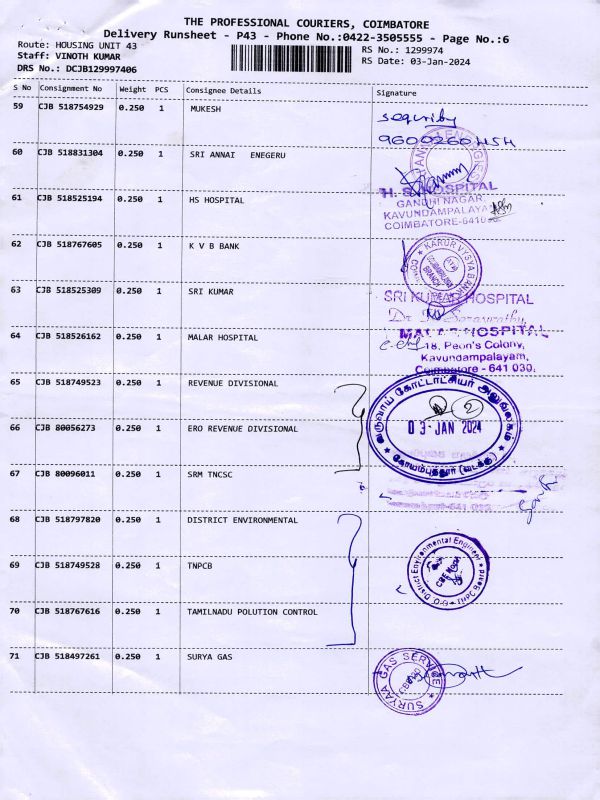 THE PROFESSIONAL COURIERS, COIMBATORE
Delivery Runsheet - P43 - Phone No.:0422-3505555 - Page No.:6
Route: HOUSING UNIT 43
Staff: VINOTH KUMAR
DRS No.: DCJB129997406
RS No.: 1299974
RS Date: 03-Jan-2024
S No Consignment No Weight PCS Consignee Details Signature
59 CJB 518754929 0.250 1 MUKESH
60 CJB 518831304 0.250 1 SRI ANNAI ENEGERU
61 CJB 518525194 0.250 1 HS HOSPITAL
HOSPITAL
GANDHI NAGAR,
KAVUNDAMPALAYAM
COIMBATORE-641030.
62 CJB 518767605 0.250 1 K V B BANK
KARUR VYSYA BANK
BRANCH
63 CJB 518525309 0.250 1 SRI KUMAR
SRI KUMAR HOSPITAL
64 CJB 518526162 0.250 1 MALAR HOSPITAL
MALAR HOSPITAL
18, Peon's Colony,
Kavundampalayam,
Coimbatore - 641 030.
65 CJB 518749523 0.250 1 REVENUE DIVISIONAL
வருவாய் கோட்டாட்சியர் அலுவலகம்
03-JAN 2024
கோயம்புத்தூர் (வடக்கு)
66 CJB 80056273 0.250 1 ERO REVENUE DIVISIONAL
67 CJB 80096011 0.250 1 SRM TNCSC
68 CJB 518797820 0.250 1 DISTRICT ENVIRONMENTAL
69 CJB 518749528 0.250 1 TNPCB
District Environmental Engineer
70 CJB 518767616 0.250 1 TAMILNADU POLUTION CONTROL
71 CJB 518497261 0.250 1 SURYA GAS
SURYAA GAS SERVICE